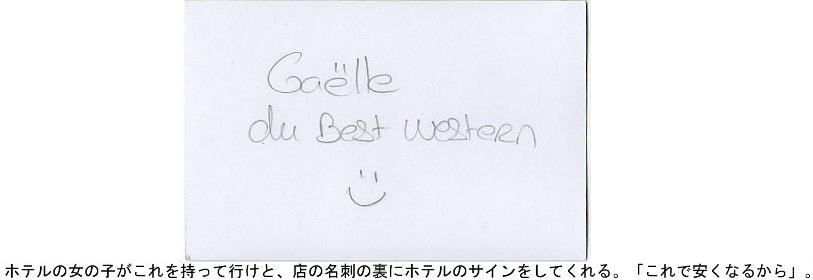 Gaëlle
du Best Western
ホテルの女の子がこれを持って行けと、店の名刺の裏にホテルのサインをしてくれる。「これで安くなるから」。